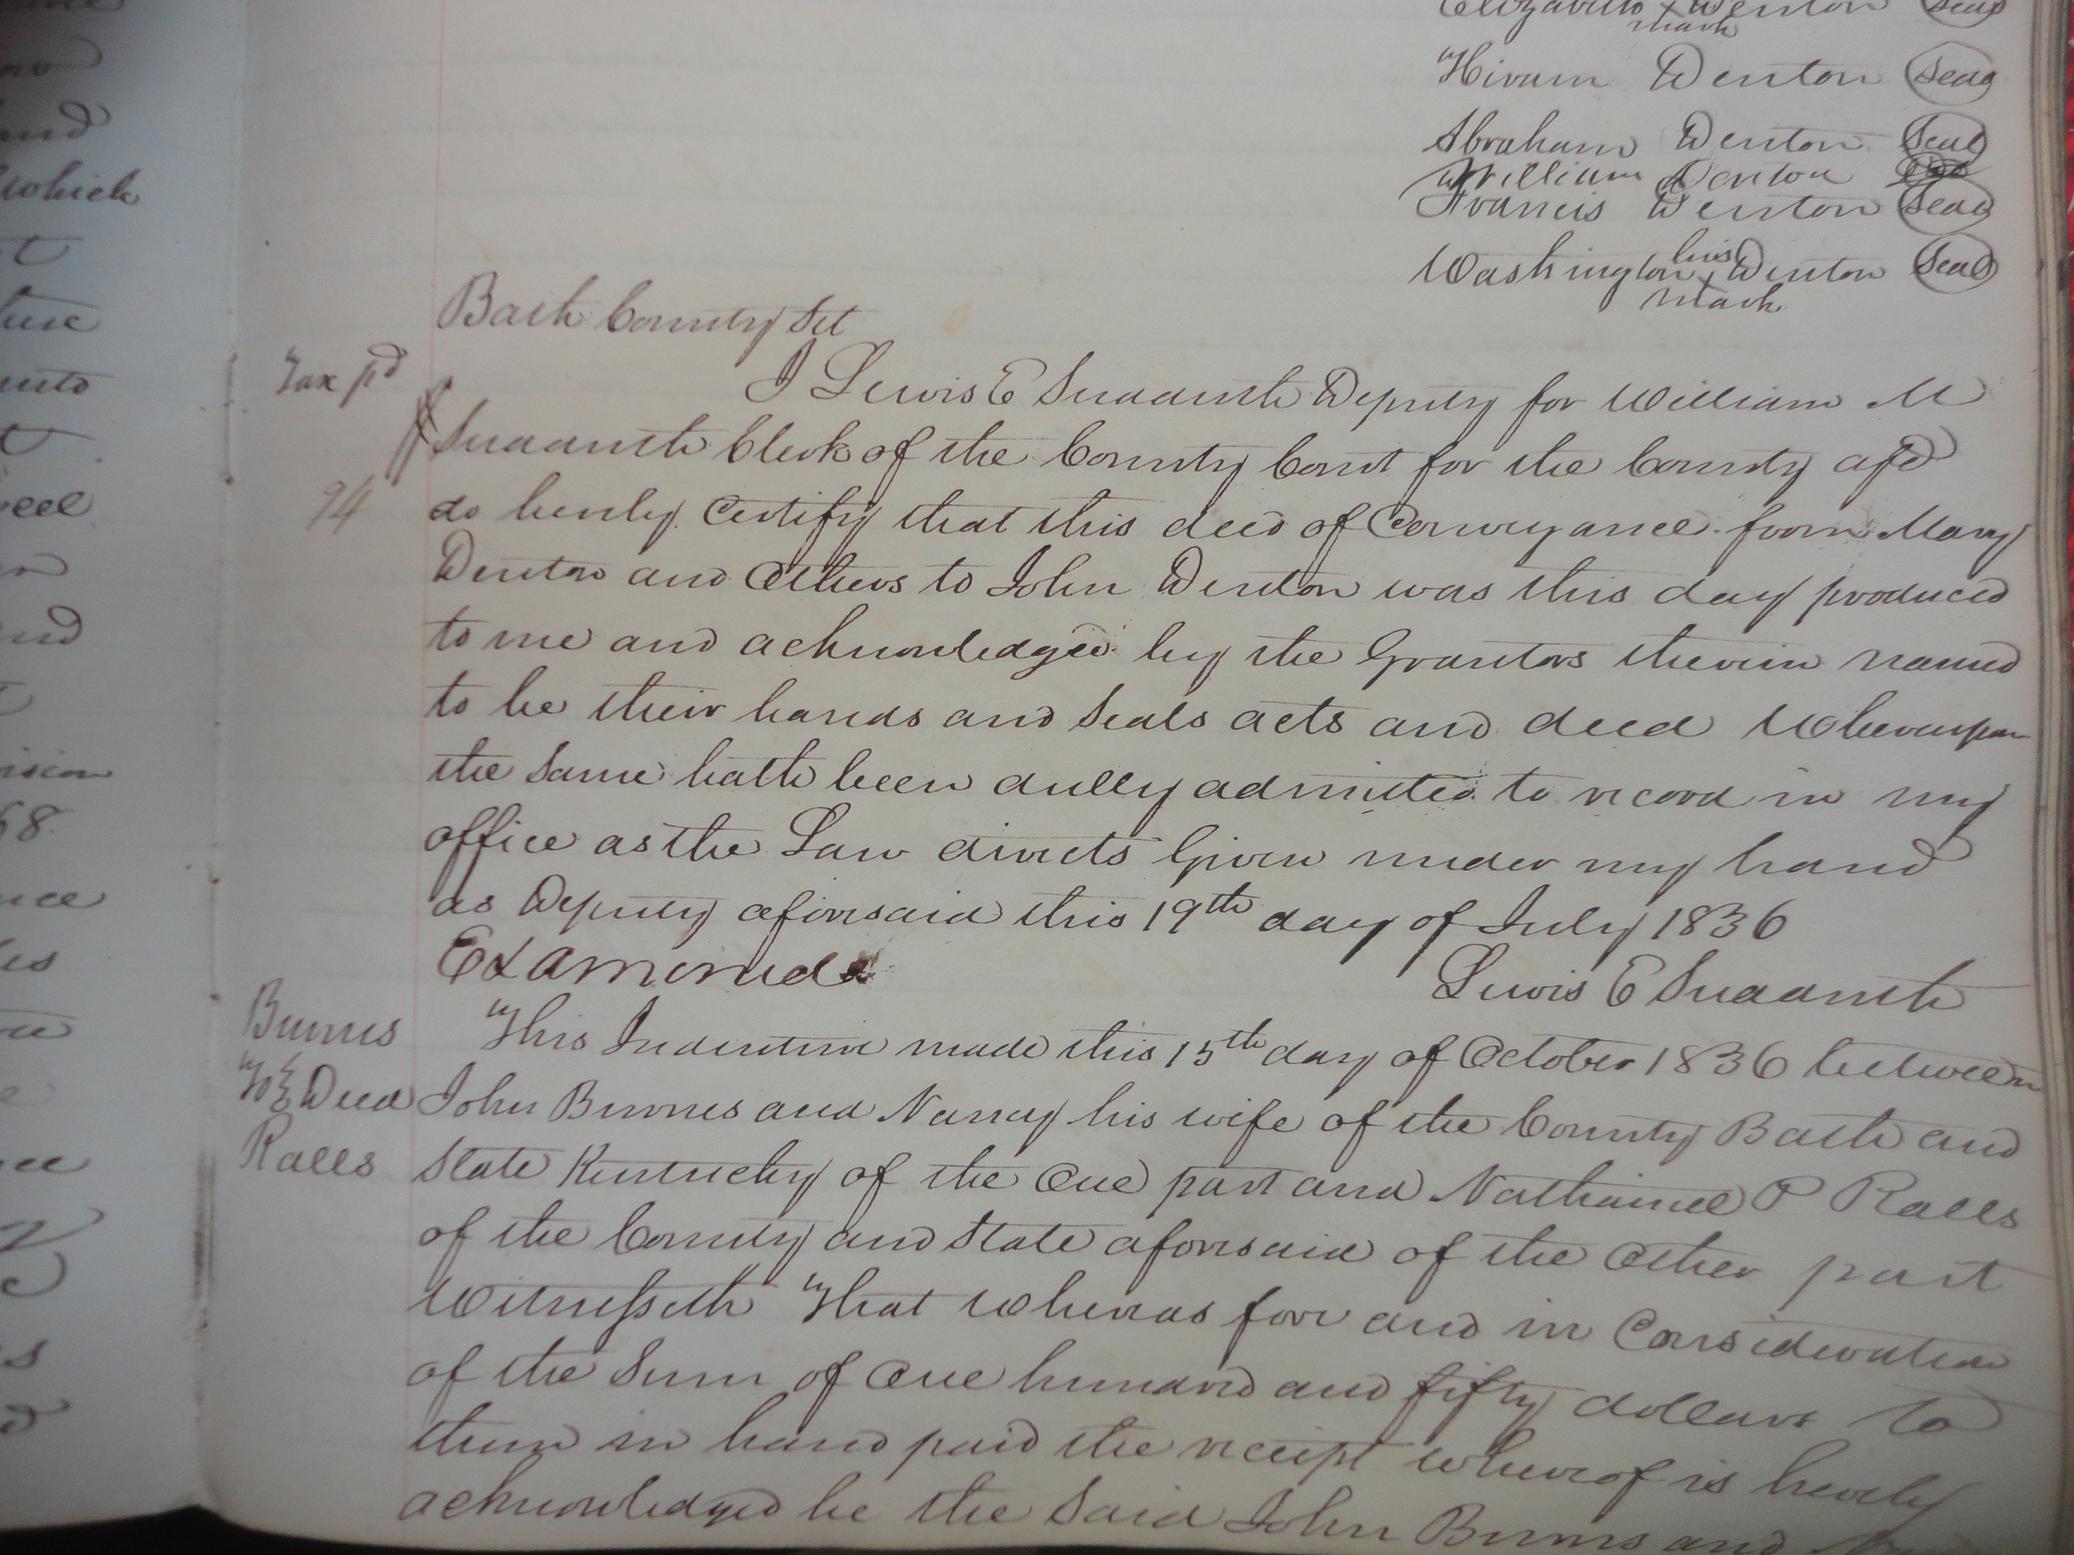 Elizabeth x Denton Seal
mark
Hiram Denton Seal
Abraham Denton Seal
William Denton
Francis Denton Seal
his
Washington x Denton Seal
mark
Bath County Sct
Tax pd
I Lewis E Sudduth Deputy for William M
Sudduth Clerk of the County Court for the County afsd
94
do hereby Certify that this deed of Conveyance from Mary
Denton and Others to John Denton was this day produced
to me and acknowledged by the Grantors therein named
to be their hands and Seals acts and deed Whereupon
the Same hath been dully admitted to record in my
office as the Law directs Given under my hand
as Deputy aforesaid this 19th day of July 1836
Examined
Lewis E Sudduth
Burns
To Deed
Ralls
This Indenture made this 15th day of October 1836 between
John Burns and Nancy his wife of the County Bath and
State Kentucky of the One part and Nathaniel P Ralls
of the County and State aforesaid of the Other part
Witnesseth That Whereas for and in Consideration
of the Sum of One hundred and fifty dollars to
them in hand paid the receipt whereof is hereby
acknowledged be the Said John Burns and
and
which
t
unto
t
and
68